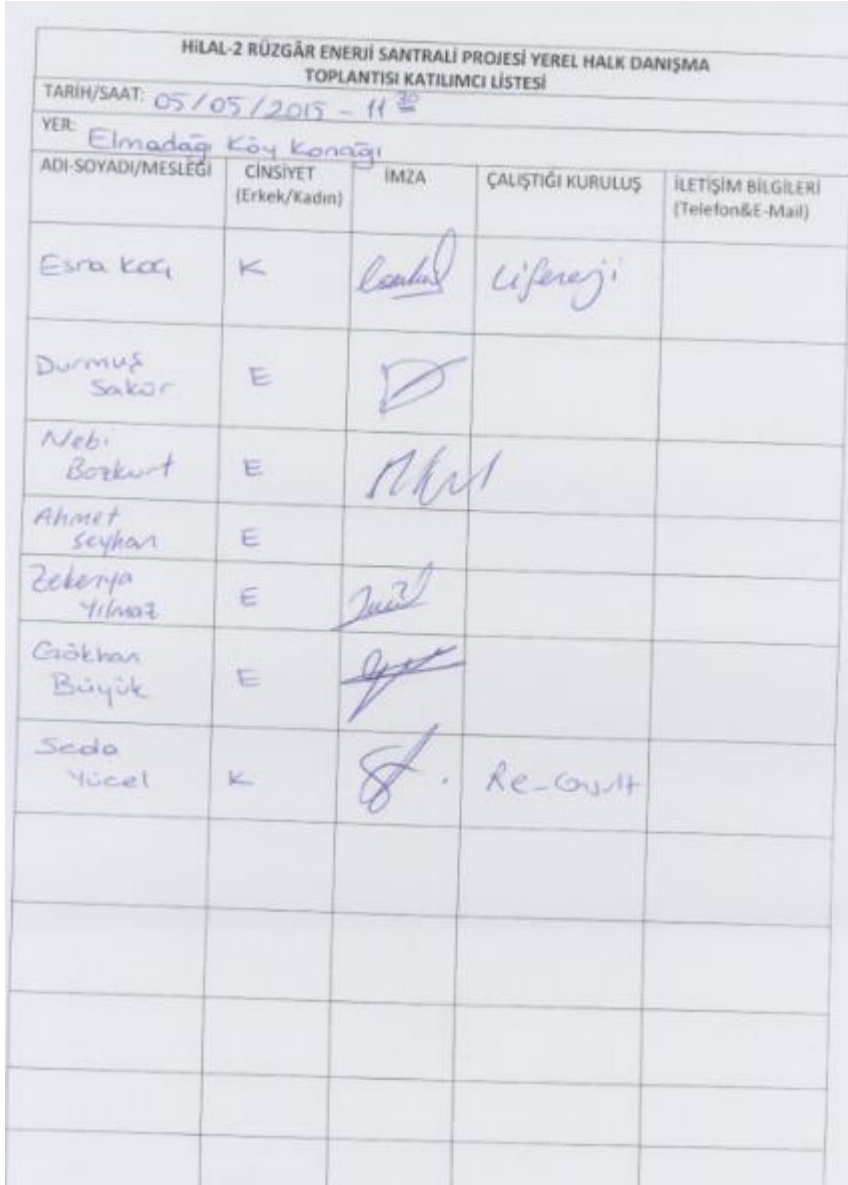 HİLAL-2 RÜZGÂR ENERJİ SANTRALİ PROJESİ YEREL HALK DANIŞMA
TOPLANTISI KATILIMCI LİSTESİ
TARİH/SAAT: 05/05/2015 - 11 30
YER: Elmadağı Köy Konağı
ADI-SOYADI/MESLEĞİ CİNSİYET İMZA ÇALIŞTIĞI KURULUŞ İLETİŞİM BİLGİLERİ
(Erkek/Kadın) (Telefon&E-Mail)
Esra Koç K
Durmuş
Sakur E
Nebi
Bozkurt E
Ahmet
Seyhan E
Zekeriya
Yılmaz E
Gökhan
Büyük E
Seda
Yücel K Re-Consult